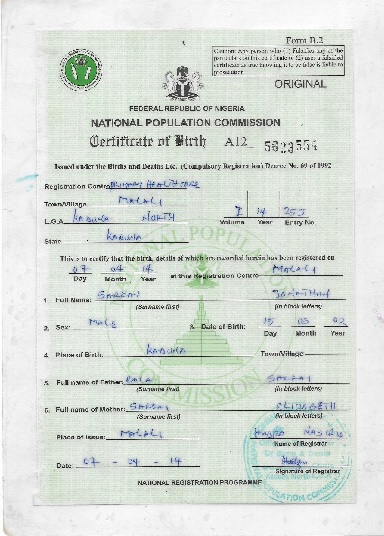 Form B.2
Caution: Any person who (1) Falsifies any of the
particulars on this certificate or (2) uses a falsified
certificate as true knowing it to be false is liable to
prosecution
ORIGINAL
FEDERAL REPUBLIC OF NIGERIA
NATIONAL POPULATION COMMISSION
Certificate of Birth A12
Issued under the Births and Deaths Etc. (Compulsory Registration) Decree No. 69 of 1992
Registration Centre PRIMARY HEALTH CARE
Town/Village MALALI
L.G.A. KADUNA NORTH I 14 255
Volume Year Entry No.
State KADUNA
This is to certify that the birth, details of which are recorded herein has been registered on
07 04 14 at this Registration Centre MALALI
Day Month Year
1. Full Name: JONATHAN
(Surname first) (in block letters)
2. Sex: MALE 3. Date of Birth: 15 03 02
Day Month Year
4. Place of Birth. KADUNA Town/Village
5. Full name of Father:
(Surname first) (in block letters)
6. Full name of Mother: ELIZABETH
(Surname first) (in block letters)
Place of Issue: MALALI
Name of Registrar
Date: 07 - 04 - 14
Signature of Registrar
NATIONAL REGISTRATION PROGRAMME